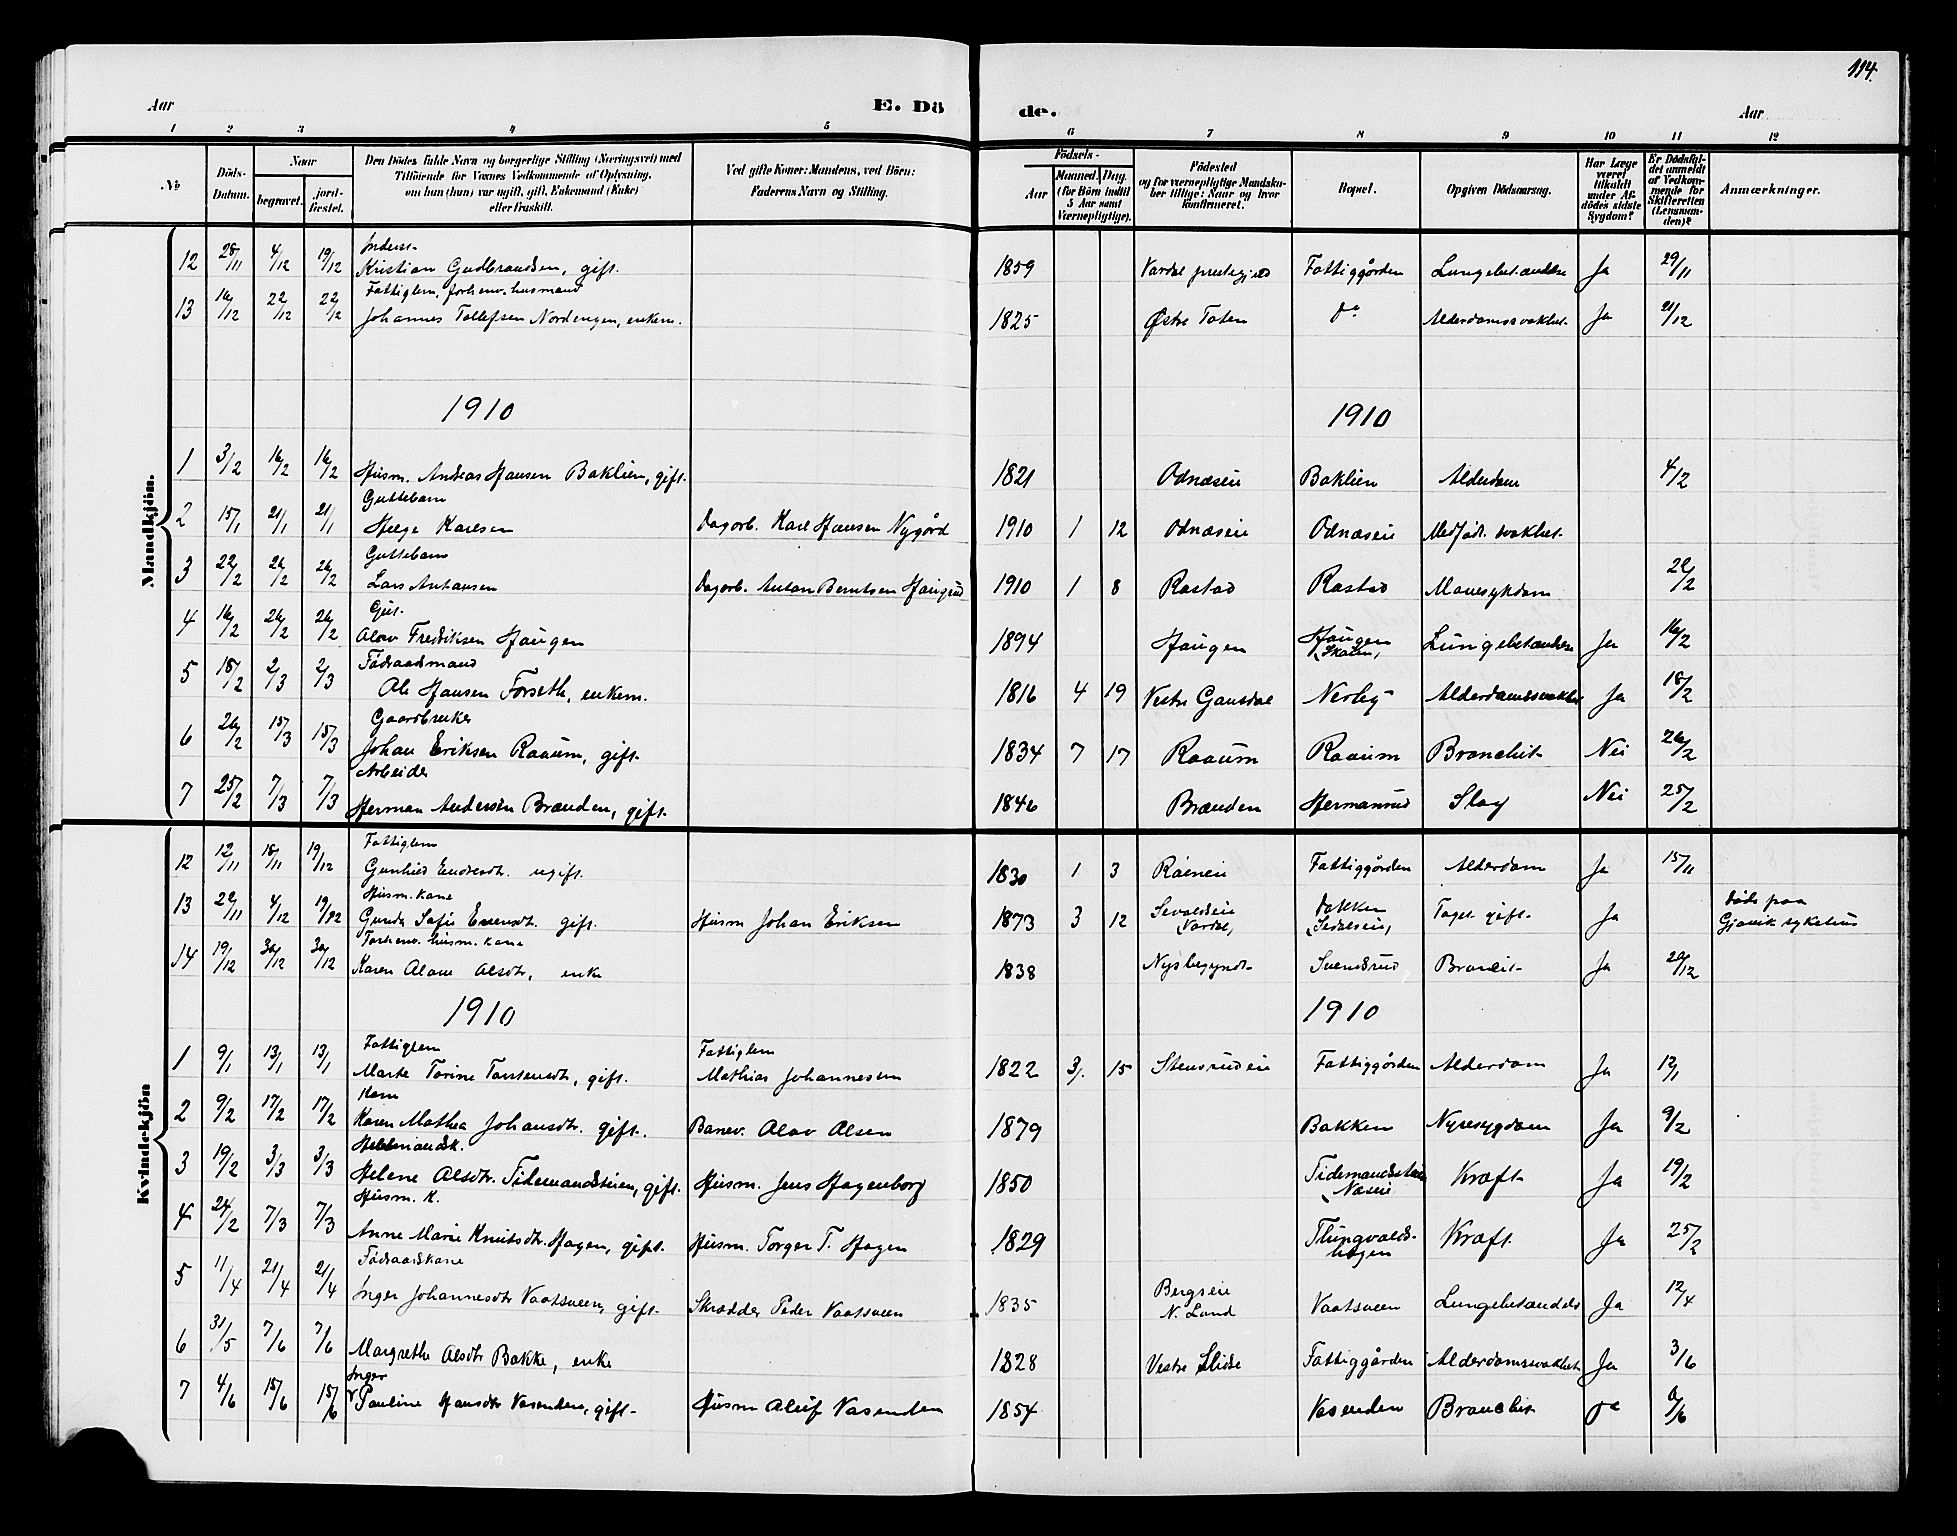 114.
Aar E. Dö de. Aar
1 2 3 4 5 6 7 8 9 10 11 12
No Döds-Datum. Naar begravet. jord-fæstet. Den Dödes fulde Navn og borgerlige Stilling (Næringsvei) med Tilföiende for Voxnes Vedkommende af Oplysning, om han (hun) var ugift, gift, Enkemand (Enke) eller fraskilt. Ved gifte Koner: Mandens, ved Börn: Faderens Navn og Stilling. Födsels- Aar Maaned. Dag. (for Börn indtil 5 Aar samt Værnepligtige). Födested og for værnepligtige Mandskaber tillige: Naar og hvor konfirmeret. Bopæl. Opgiven Dödsaarsag. Har Læge været tilkaldt under Afdödes sidste Sygdom? Er Dödsfaldet anmeldt af Vedkommende for Skifteretten (Lensmanden)? Anmærkninger.
Mandkjön.
Inderst
12 28/11 4/12 19/12 Kristian Gudbrandsen, gift. 1859 Vardal prestegjeld Fattiggården Lungebetændelse Ja 29/11
Fattiglem, forhenv. husmand
13 16/12 22/12 22/12 Johannes Tollefsen Nordengen, enkem. 1825 Østre Toten do Alderdomssvakhet Ja 21/12
1910 1910
1 3/2 16/2 16/2 Husm. Andreas Hansen Baklien, gift. 1821 Odnæseie Baklien Alderdom 4/2
Guttebarn
2 15/1 21/1 21/1 Helge Karlsen Dagarb. Karl Hansen Nygård 1910 1 12 Odnæseie Odnæseie Medfødt svakhet.
Guttebarn
3 22/2 26/2 26/2 Lars Antonsen Dagarb. Anton Berntsen Haugrud 1910 1 8 Rastad Rastad Mavesykdom 22/2
Gut.
4 16/2 26/2 26/2 Olav Fredriksen Haugen 1894 Haugen Haugen Lungebetændelse Ja 16/2
Föderaadmand
5 18/2 2/3 2/3 Ole Hansen Forseth, enkem. 1816 4 19 Vestre Gausdal Nerby Alderdomssvakhet Ja 18/2
Gaardbruker
6 26/2 15/3 15/3 Johan Eriksen Raaum, gift. 1834 7 17 Raaum Raaum Bronchit Nei 26/2
Arbeider
7 25/2 7/3 7/3 Herman Andersen Brænden, gift. 1846 Brænden Hermanrud Slag Nei 25/2
Kvindekjön
Fattiglem
12 12/11 18/11 19/12 Gunhild Endresdt. ugift. 1830 1 3 Fattiggården Alderdom Ja 15/11
Husm. kone
13 22/11 4/12 19/12 Sofie gift. Husm Johan Eriksen 1873 3 12 Sevaldseie (Vardal) Bakken Ja Død paa Gjøvik sykehus
Forhenv. husm. kone
14 19/12 30/12 30/12 Karen Olave Olsdtr, enke 1838 Svendsrud Broncit Ja 20/12
1910 1910
Fattiglem Fattiglem
1 9/1 13/1 13/1 Marte Torine Torstensdtr, gift. Mathias Johannesen 1822 3. 15 Stensrudeie Fattiggården Alderdom Ja 12/1
Kone
2 9/2 17/2 17/2 Karen Mathea Johansdtr. gift. Banev. Olav Olsen 1879 Bakken Nyresygdom Ja 9/2
3 19/2 3/3 3/3 Helene Olsdtr. Tidemandseien, gift. Husm. Jens Hagenborg 1850 Kræft Ja 19/2
Husm. k.
4 24/2 7/3 7/3 Anne Marie Knutsdtr. Hagen, gift. Husm. Torger T. Hagen 1829 Kræft Ja 25/2
Föderaadskone
5 11/4 21/4 21/4 Inger Johannesdtr Vaatsveen, gift. Skrædder Peder Vaatsveen 1835 Bergseie N. Land Vaatsveen Lungebetændels Ja 12/4
6 31/5 7/6 7/6 Margrethe Olsdtr Bakke, enke 1828 Vestre Slidre Fattiggården Alderdomssvakhet Ja 3/6
Inger
7 4/6 15/6 15/6 Pauline Hansdtr Vasenden, gift. Husm Oluf Vasenden 1854 Vasenden Bronchit do 6/6